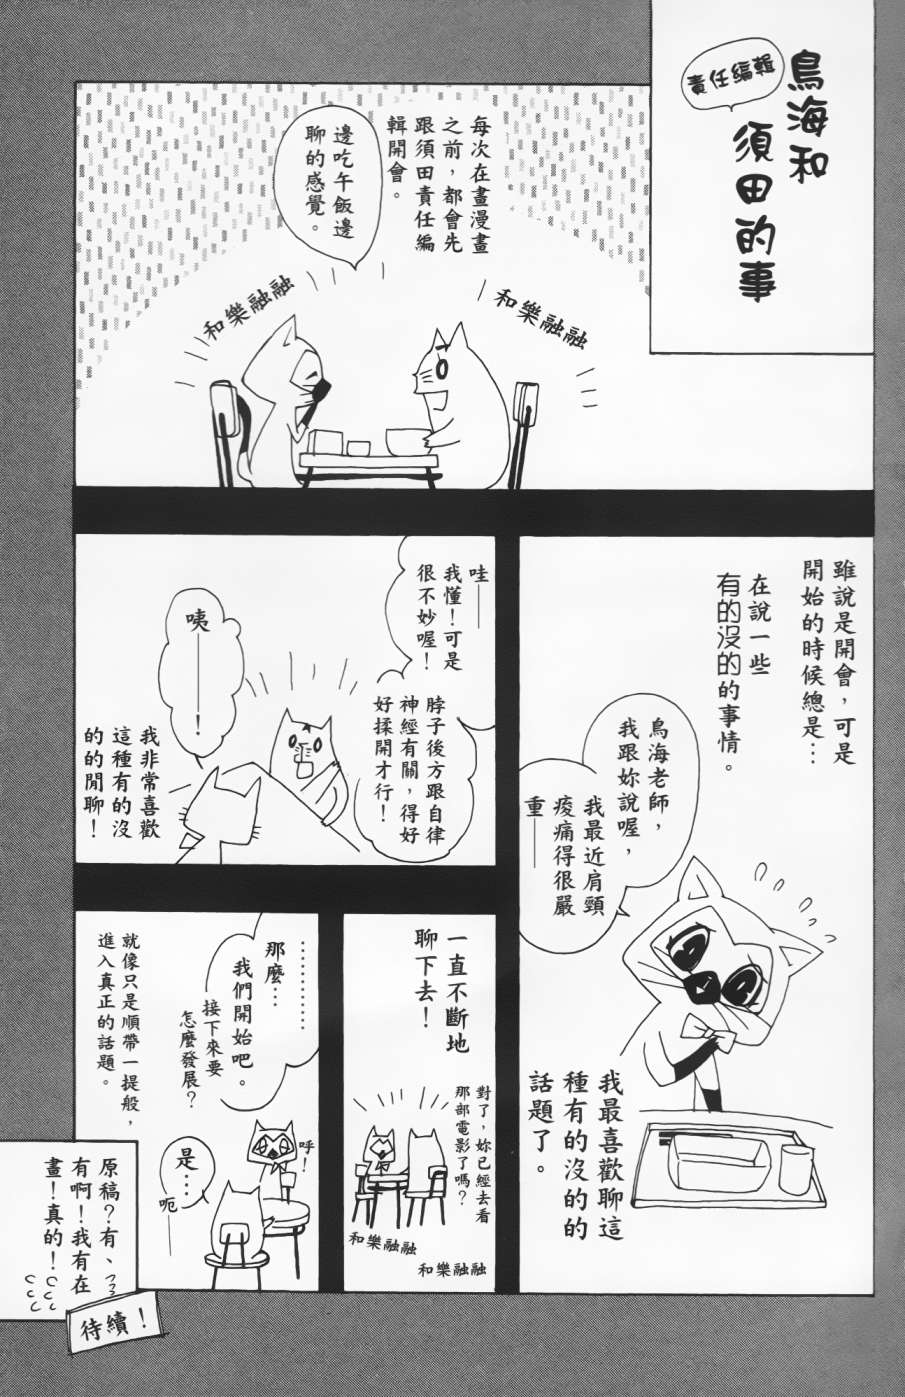 鳥海和
責任編輯
須田的事
每次在畫漫畫
之前，都會先
跟須田責任編
輯開會。
邊吃午飯邊
聊的感覺。
和樂融融
和樂融融
雖說是開會，可是
開始的時候總是…
在說一些
有的沒的的事情。
鳥海老師，
我跟妳說喔，
我最近肩頸
痠痛得很嚴
重——
我最喜歡聊這
種有的沒的的
話題了。
哇——
我懂！可是
很不妙喔！
脖子後方跟自律
神經有關，得好
好揉開才行！
咦——！
我非常喜歡
這種有的沒
的的閒聊！
一直不斷地
聊下去！
對了，妳已經去看
那部電影了嗎？
和樂融融
和樂融融
…………
那麼…
我們開始吧。
接下來要
怎麼發展？
呼！
是…
呃——
就像只是順帶一提般，
進入真正的話題。
原稿？有、
有啊！我有在
畫！真的！
待續！